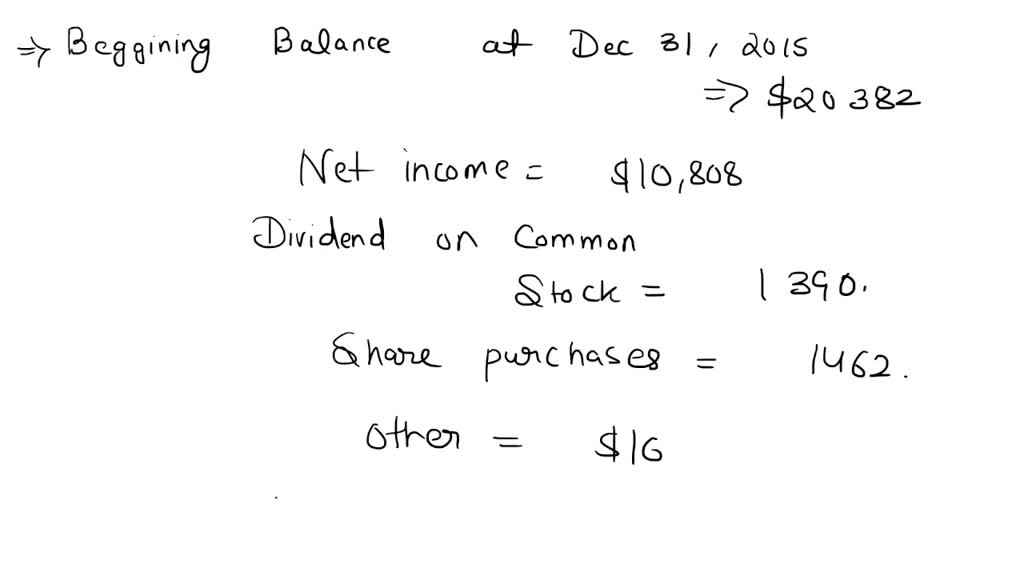 ⇒ Beggining Balance at Dec 31, 2015
⇒ $20 382
Net income = $10,808
Dividend on Common
Stock = 1 390.
Share purchases = 1462.
Other = $16